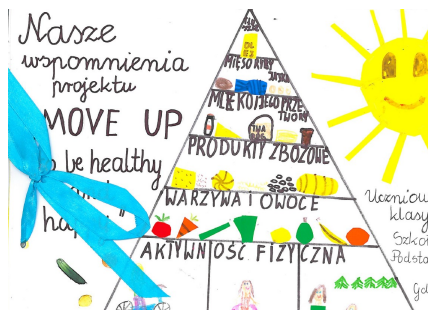 Nasze
wspomnienia
projektu
MOVE UP
be healthy
OLEJ
MIĘSO RYBY
MLEKO I JEGO PRZE
TWORY
PRODUKTY ZBOŻOWE
WARZYWA I OWOCE
AKTYWNOŚĆ FIZYCZNA
Uczniow
klasy
Szko
Podsta